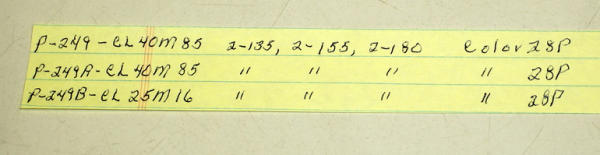 P-249-CL 40M 85 2-135, 2-155, 2-180 Color 28P
P-249A-CL 40M 85 " " " " 28P
P-249B-CL 25M 16 " " " " 28P